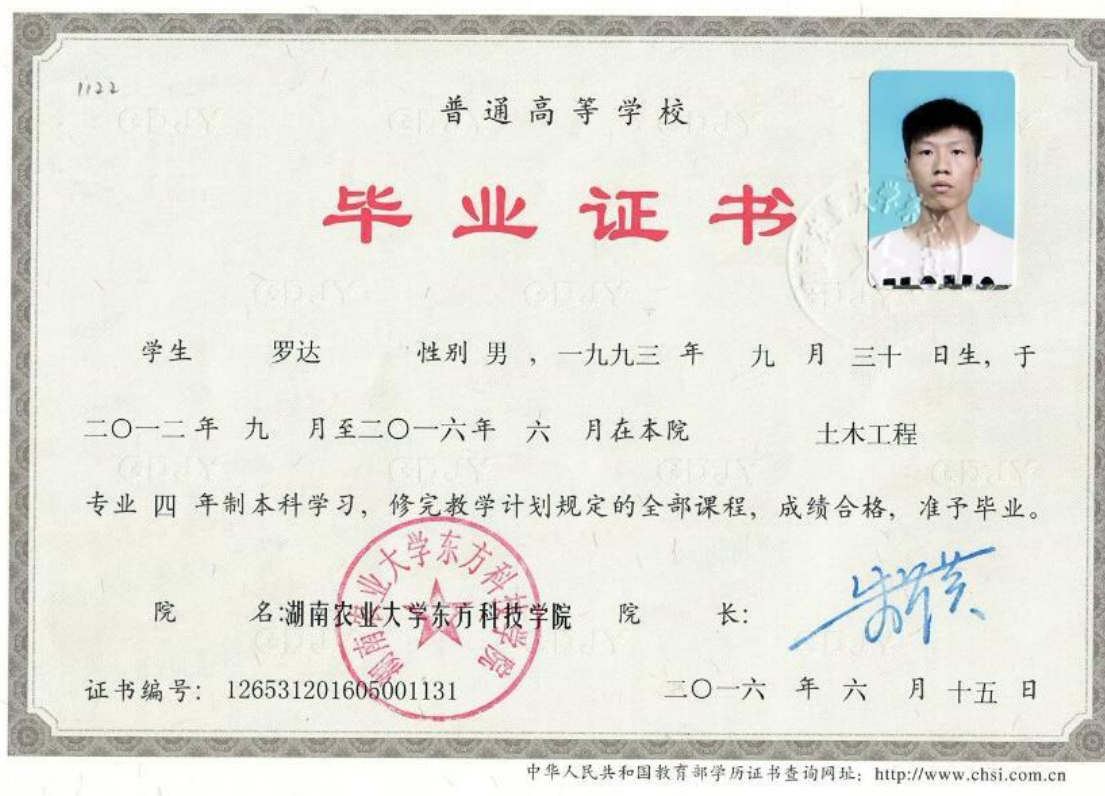 1122
普通高等学校
毕业证书
学生 罗达 性别 男 , 一九九三 年 九 月 三十 日生, 于
二〇一二年 九 月至二〇一六年 六 月在本院 土木工程
专业 四 年制本科学习, 修完教学计划规定的全部课程, 成绩合格, 准予毕业。
湖南农业大学东方科技学院
院 名:湖南农业大学东方科技学院 院 长:
证书编号: 126531201605001131 二〇一六 年 六 月 十五 日
中华人民共和国教育部学历证书查询网址: http://www.chsi.com.cn